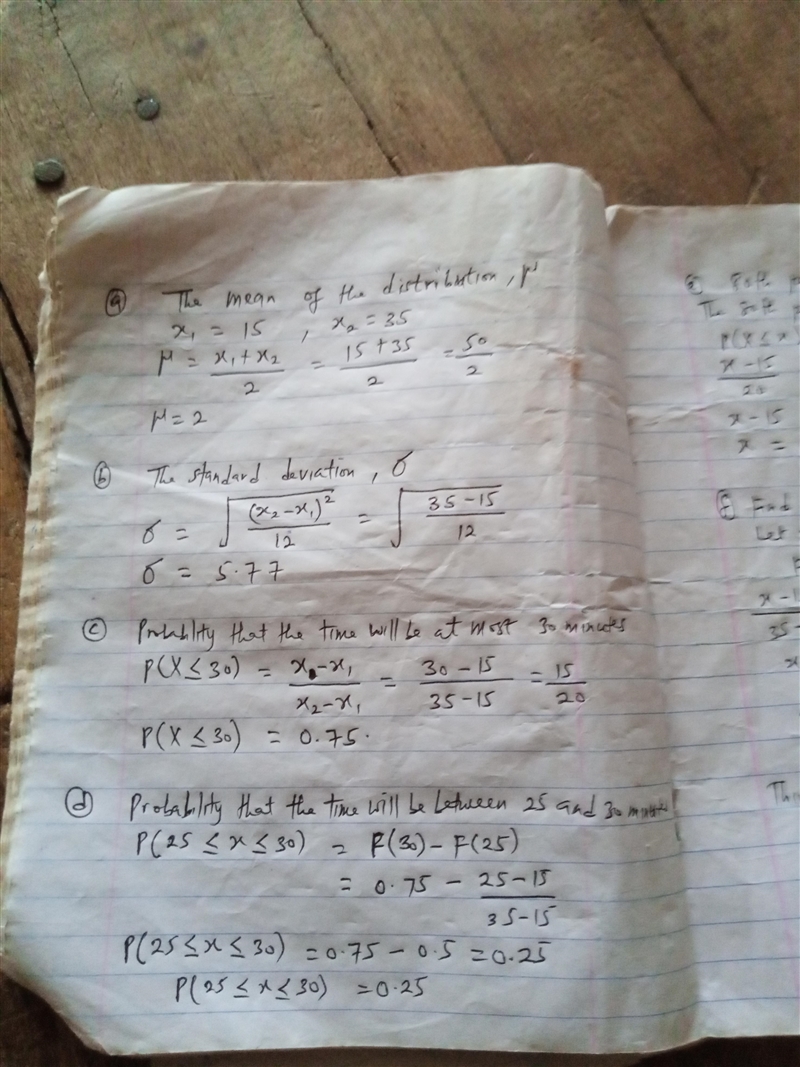 (a) The mean of the distribution, μ
x₁ = 15 , x₂ = 35
μ = x₁+x₂/2 = 15+35/2 = 50/2
μ = 2
(b) The standard deviation, σ
σ = √((x₂-x₁)²/12) = √(35-15/12)
σ = 5.77
(c) Probability that the time will be at most 30 minutes
P(X ≤ 30) = x-x₁/x₂-x₁ = 30-15/35-15 = 15/20
P(X ≤ 30) = 0.75.
(d) Probability that the time will be between 25 and 30 minutes
P(25 ≤ x ≤ 30) = F(30) - F(25)
= 0.75 - 25-15/35-15
P(25 ≤ x ≤ 30) = 0.75 - 0.5 = 0.25
P(25 ≤ x ≤ 30) = 0.25
The 80th p
P(X ≤ x)
x-15/20
x-15
x =
(f) Find
Let
x-1
35-
x
Thi